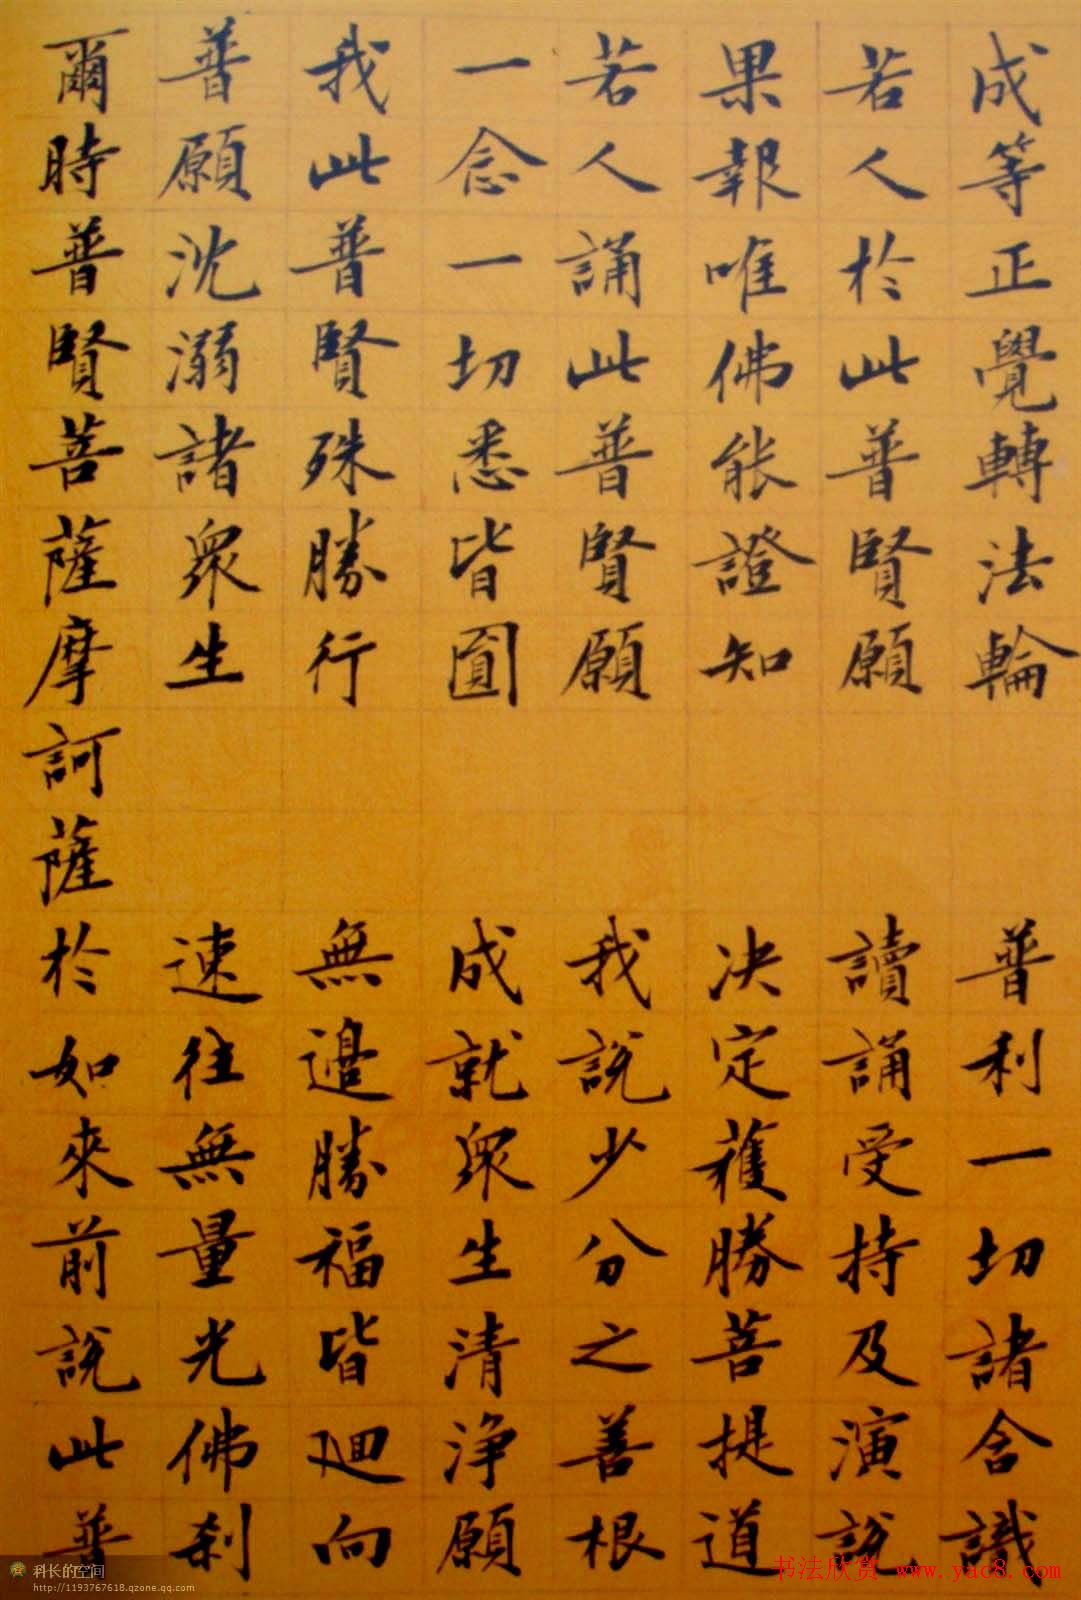 成等正覺轉法輪　普利一切諸含識
若人於此普賢願　讀誦受持及演說
果報唯佛能證知　决定獲勝菩提道
若人誦此普賢願　我說少分之善根
一念一切悉皆圓　成就眾生清淨願
我此普賢殊勝行　無邊勝福皆迴向
普願沈溺諸眾生　速往無量光佛刹
爾時普賢菩薩摩訶薩於如來前說此普
科长的空间
http://1193767618.qzone.qq.com
书法欣赏 www.yac8.com